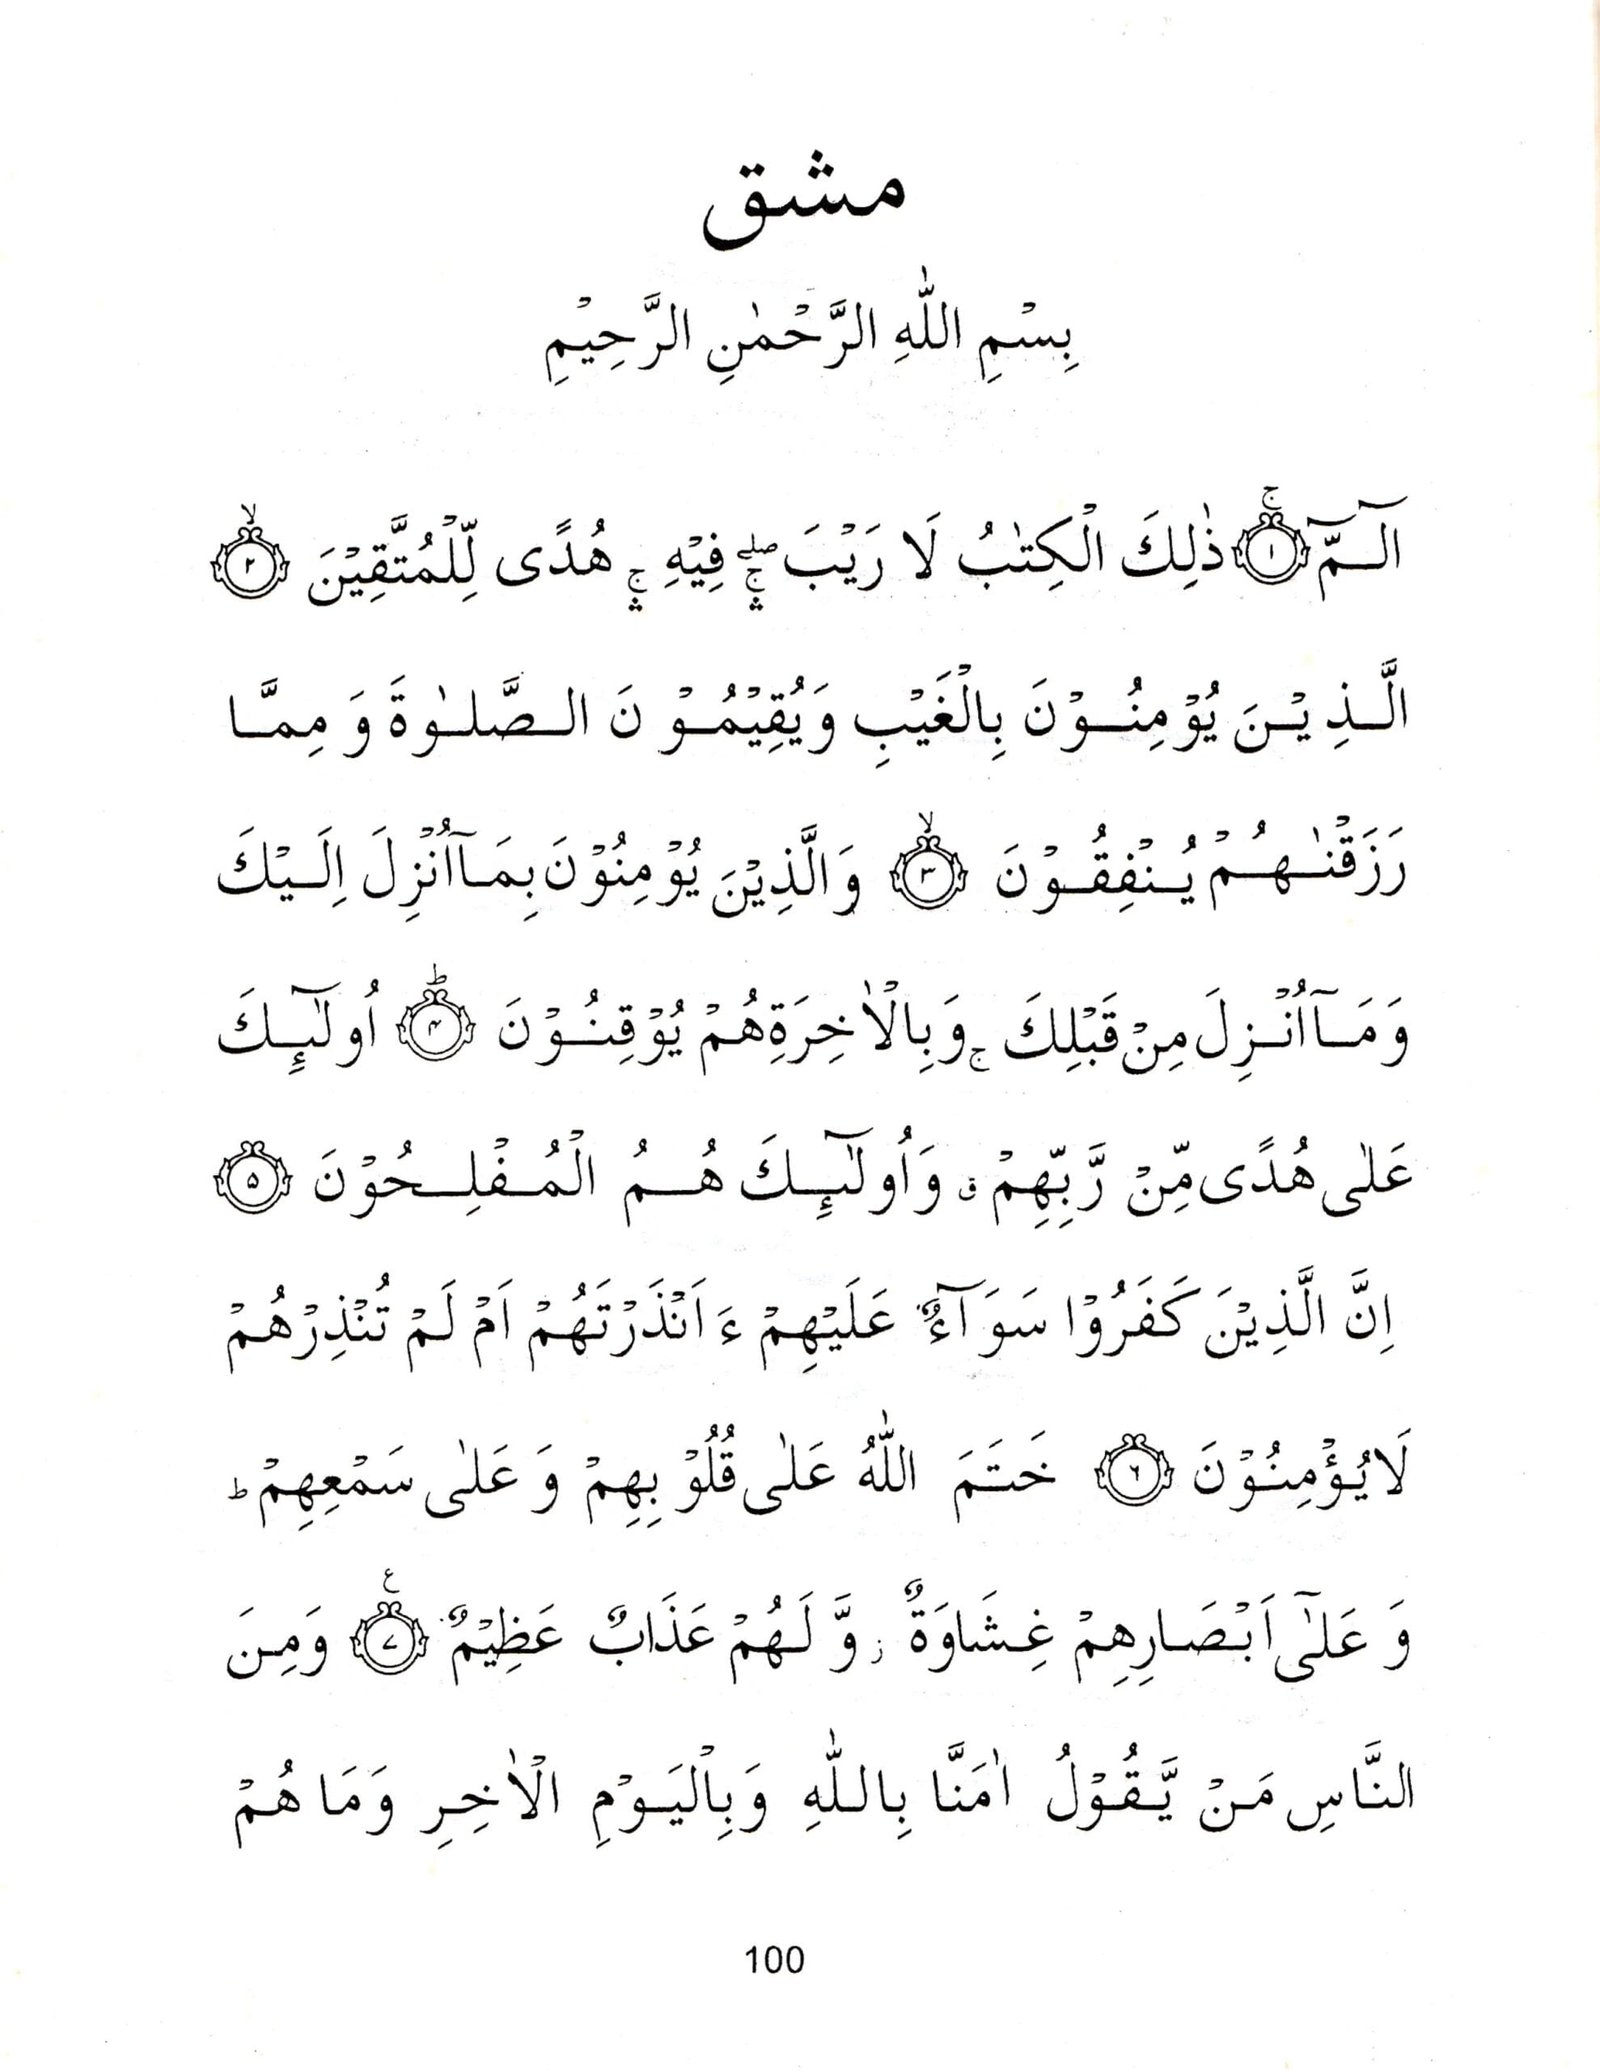 مشق
بِسْمِ اللّٰهِ الرَّحْمٰنِ الرَّحِيْمِ
الٓـمّٓ ۚ﴿۱﴾ ذٰلِكَ الْكِتٰبُ لَا رَيْبَ ۛۖۚ فِيْهِ ۛۚ هُدًى لِّلْمُتَّقِيْنَ ۙ﴿۲﴾
الَّـذِيْـنَ يُوْمِنُـوْنَ بِالْغَيْبِ وَيُقِيْمُـوْنَ الـصَّلـٰوةَ وَ مِمَّـا
رَزَقْنٰـهُـمْ يُـنْفِقُـوْنَ ۙ﴿۳﴾ وَالَّذِيْنَ يُوْمِنُوْنَ بِمَـآاُنْزِلَ اِلَـيْكَ
وَ مَـآاُنْـزِلَ مِنْ قَبْلِكَ ۚ وَبِالْاٰخِرَةِهُمْ يُوْقِنُـوْنَ ؕ﴿۴﴾ اُولٰٓـئِـكَ
عَلٰى هُدًى مِّنْ رَّبِّهِمْ ۗ وَاُولٰٓـئِـكَ هُـمُ الْمُـفْلِـحُوْنَ ﴿۵﴾
اِنَّ الَّذِيْنَ كَفَرُوْا سَوَآءٌ عَلَيْهِمْ ءَ اَنْذَرْتَهُمْ اَمْ لَمْ تُنْذِرْهُمْ
لَا يُؤْمِنُوْنَ ﴿۶﴾ خَتَمَ اللّٰهُ عَلٰى قُلُوْبِهِمْ وَ عَلٰى سَمْعِهِمْ ؕ
وَ عَلٰٓى اَبْصَارِهِمْ غِشَاوَةٌ ز وَّ لَهُمْ عَذَابٌ عَظِيْمٌ ع﴿۷﴾ وَمِنَ
النَّاسِ مَنْ يَّقُوْلُ اٰمَنَّا بِاللّٰهِ وَبِالْيَوْمِ الْاٰخِرِ وَمَا هُمْ
100